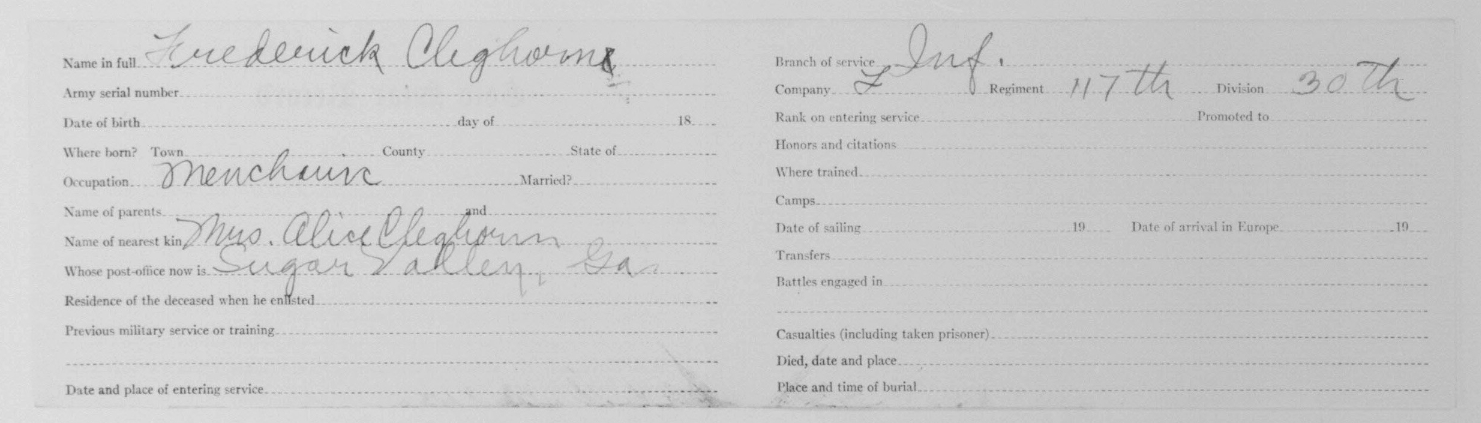 Name in full Frederick Cleghorn
Army serial number
Date of birth day of 18
Where born? Town County State of
Occupation Married?
Name of parents and
Name of nearest kin Mrs. Alice Cleghorn
Whose post-office now is Sugar Valley, Ga
Residence of the deceased when he enlisted
Previous military service or training
Date and place of entering service
Branch of service Inf.
Company L Regiment 117th Division 30th
Rank on entering service Promoted to
Honors and citations
Where trained
Camps
Date of sailing 19 Date of arrival in Europe 19
Transfers
Battles engaged in
Casualties (including taken prisoner)
Died, date and place
Place and time of burial